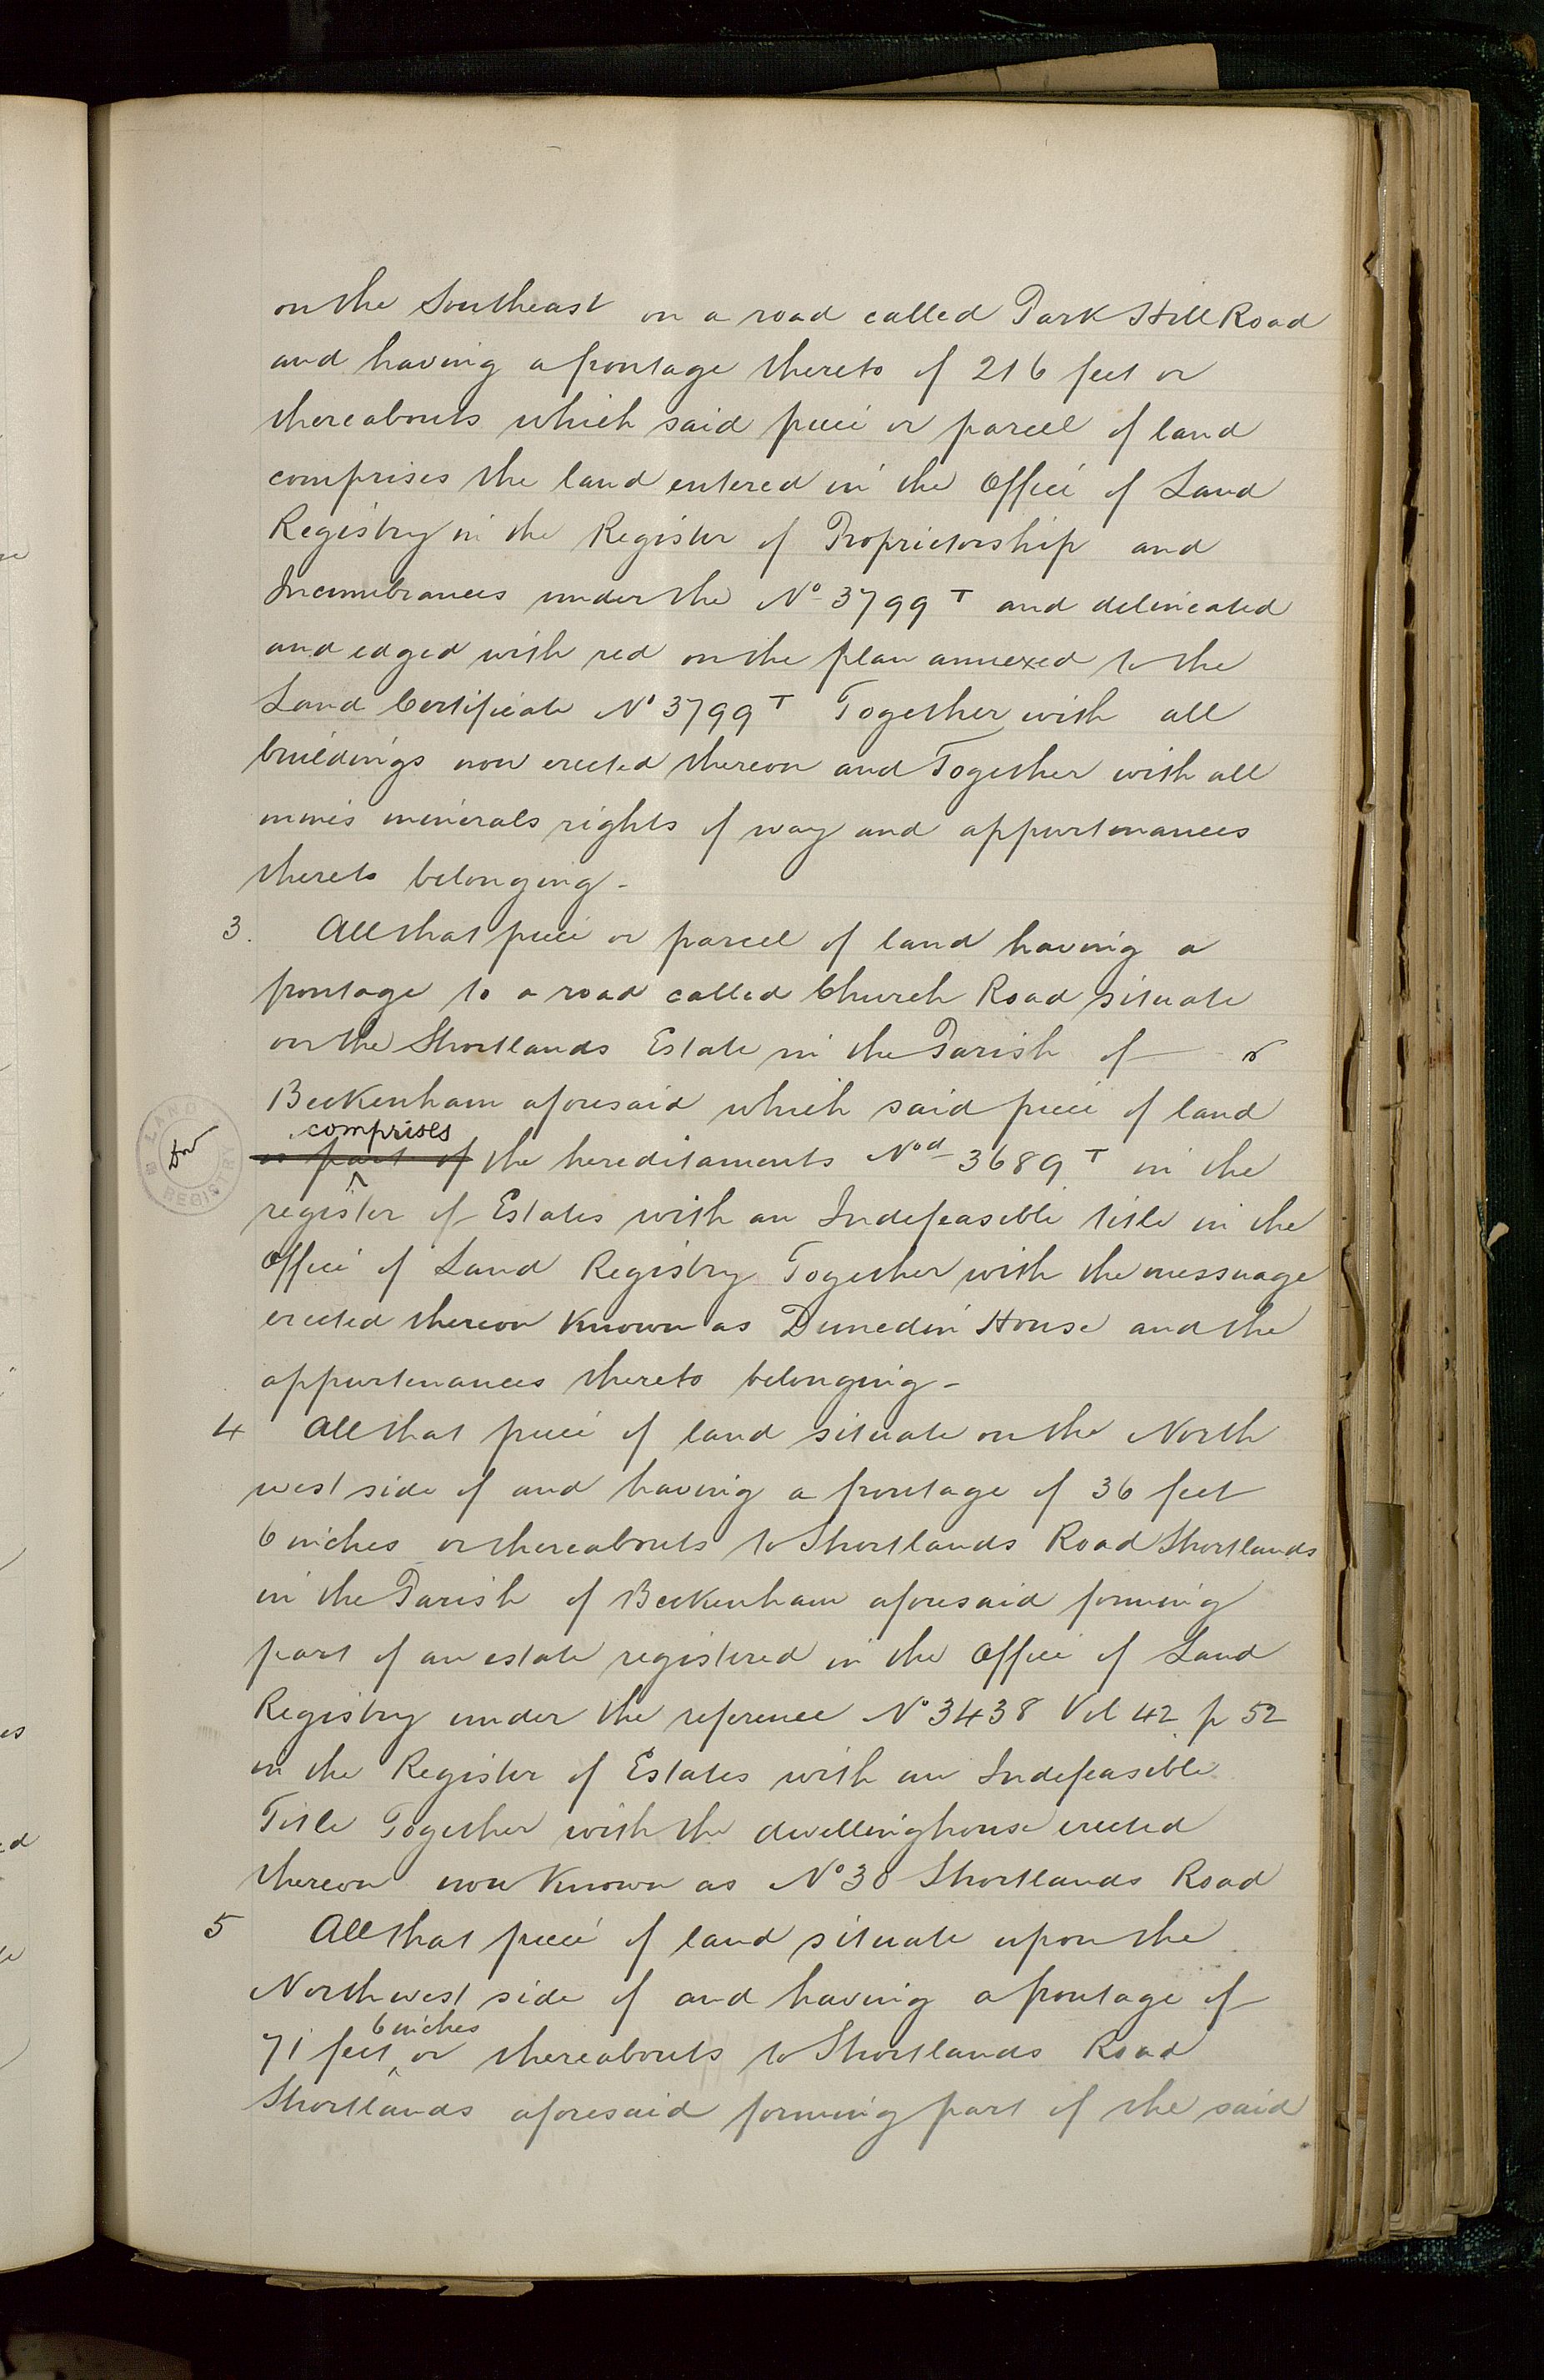 on the Southeast on a road called Park Hill Road
and having a frontage thereto of 216 feet or
thereabouts which said piece or parcel of land
comprises the land entered in the Office of Land
Registry in the Register of Proprietorship and
Incumbrances under the No 3799 T and delineated
and edged with red on the plan annexed to the
Land Certificate No 3799 T Together with all
buildings now erected thereon and Together with all
mines minerals rights of way and appurtenances
thereto belonging -
3. All that piece or parcel of land having a
frontage to a road called Church Road situate
on the Shortlands Estate in the Parish of
Beckenham aforesaid which said piece of land
comprises
LAND REGISTRY
is part of the hereditaments Nod 3689 T in the
register of Estates with an Indefeasible title in the
Office of Land Registry Together with the messuage
erected thereon known as Dunedin House and the
appurtenances thereto belonging -
4 All that piece of land situate on the North
west side of and having a frontage of 36 feet
6 inches or thereabouts to Shortlands Road Shortlands
in the Parish of Beckenham aforesaid forming
part of an estate registered in the Office of Land
Registry under the reference No 3438 Vol 42 p 52
in the Register of Estates with an Indefeasible
Title Together with the dwellinghouse erected
thereon now known as No 38 Shortlands Road
5 All that piece of land situate upon the
North west side of and having a frontage of
6 inches
71 feet or thereabouts to Shortlands Road
Shortlands aforesaid forming part of the said